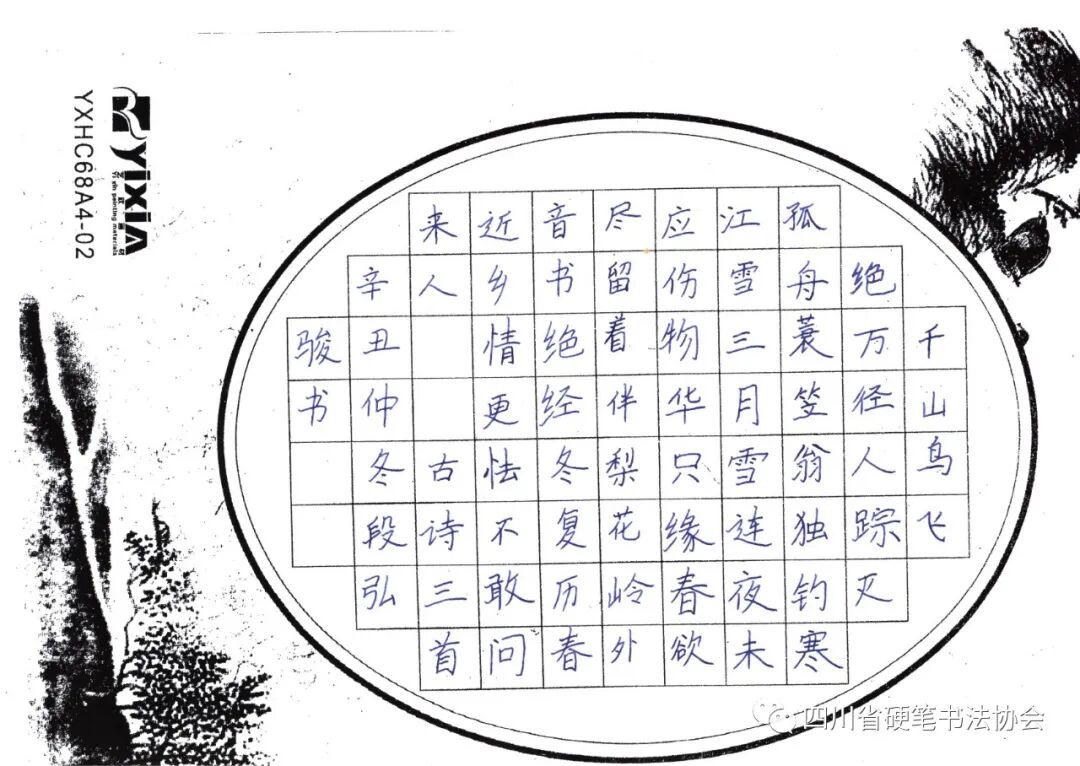 千山鸟飞
绝万径人踪灭
孤舟蓑笠翁独钓寒
江雪三月雪连夜未
应伤物华只缘春欲
尽留着伴梨花岭外
音书绝经冬复历春
近乡情更怯不敢问
来人 古诗三首
辛丑仲冬段弘
骏书
YixiA
Yi xin painting materials
YXHC68A4-02
四川省硬笔书法协会